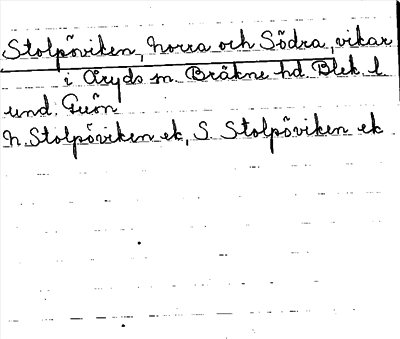 Stolpöviken, Norra och Södra, vikar
i Åryds sn. Bräkne hd. Blek. l
und. Guön
N. Stolpöviken ek, S. Stolpöviken ek.